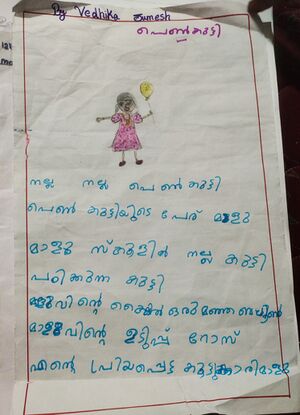 By Vedhika Sumesh
പെൺകുട്ടി
നല്ല നല്ല പെൺ കുട്ടി
പെൺ കുട്ടിയുടെ പേര് മാളു
മാളു സ്കൂളിൽ നല്ല കുട്ടി
പഠിക്കുന്ന കുട്ടി
മാളുവിന്റെ കൈയിൽ ഒരു മഞ്ഞ ബലൂൺ
മാളുവിന്റെ ഉടുപ്പ് റോസ്
എന്റെ പ്രിയപ്പെട്ട കൂട്ടുക്കാരി മാളു